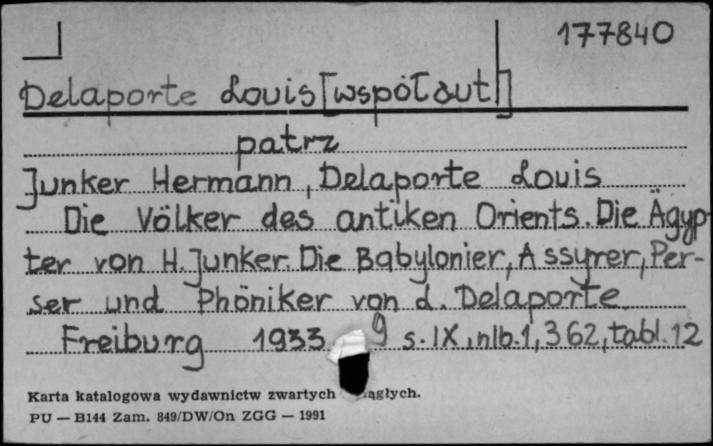 177840
Delaporte Louis [współaut]
patrz
Junker Hermann, Delaporte Louis
Die Völker des antiken Orients. Die Ägyp-
ter von H. Junker. Die Babylonier, Assyrer, Per-
ser und Phöniker von L. Delaporte
Freiburg 1933 s. IX, nlb. 1, 362, tabl. 12
Karta katalogowa wydawnictw zwartych
PU — B144 Zam. 849/DW/On ZGG — 1991